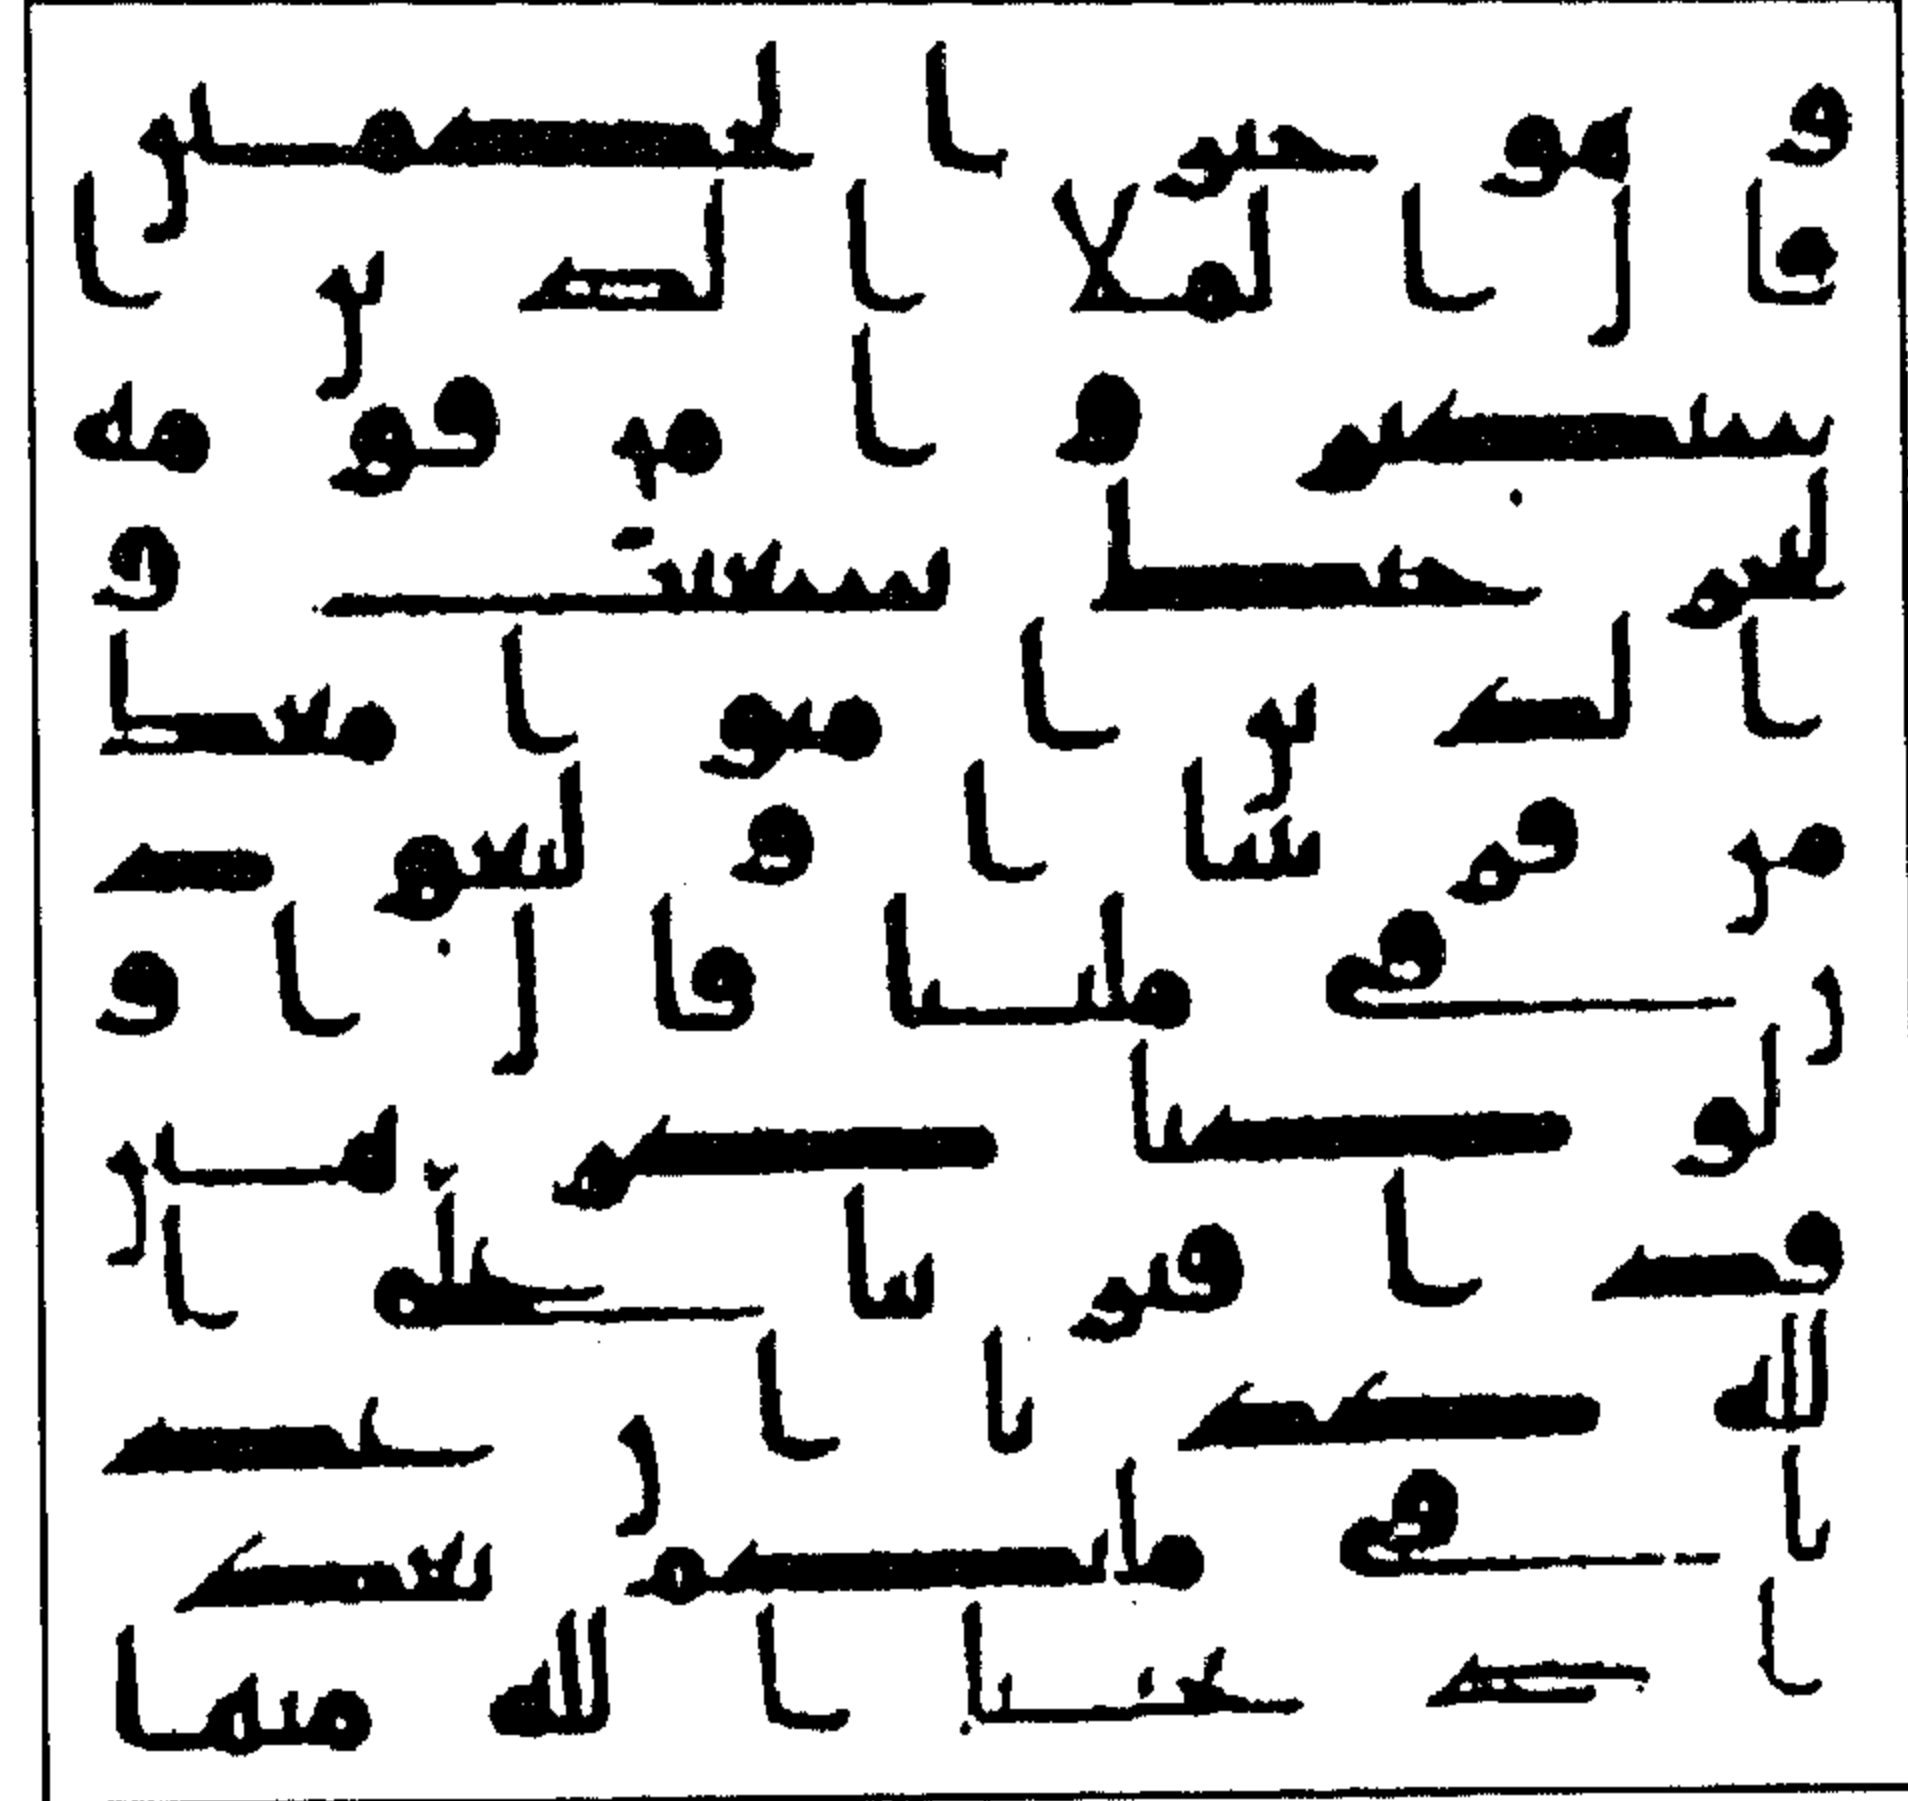 و هو خير ا لحكمين
قا ل ا لملا ا لذ ين ا
ستكبر و ا من قو مه
لنخر جنك يشعيب و
ا لذ ين ا منو ا معك
من قر يتنا ا و لتعو د
ن في ملتنا قا ل ا و
لو كنا كر هين
قد ا فتر ينا على ا
لله كذ با ا ن عد
نا في ملتكم بعد
ا ذ نجينا ا لله منها